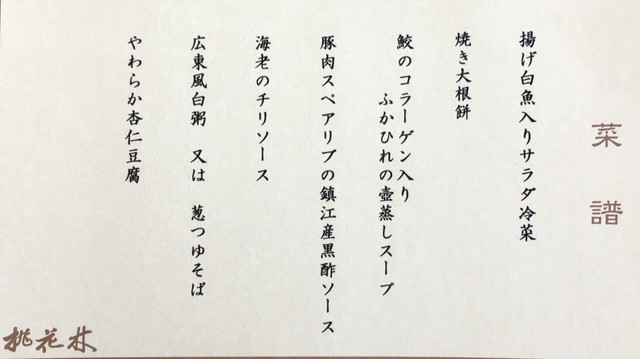 菜譜
揚げ白魚入りサラダ冷菜
焼き大根餅
鮫のコラーゲン入り
ふかひれの壺蒸しスープ
豚肉スペアリブの鎮江産黒酢ソース
海老のチリソース
広東風白粥 又は 葱つゆそば
やわらか杏仁豆腐
桃花林